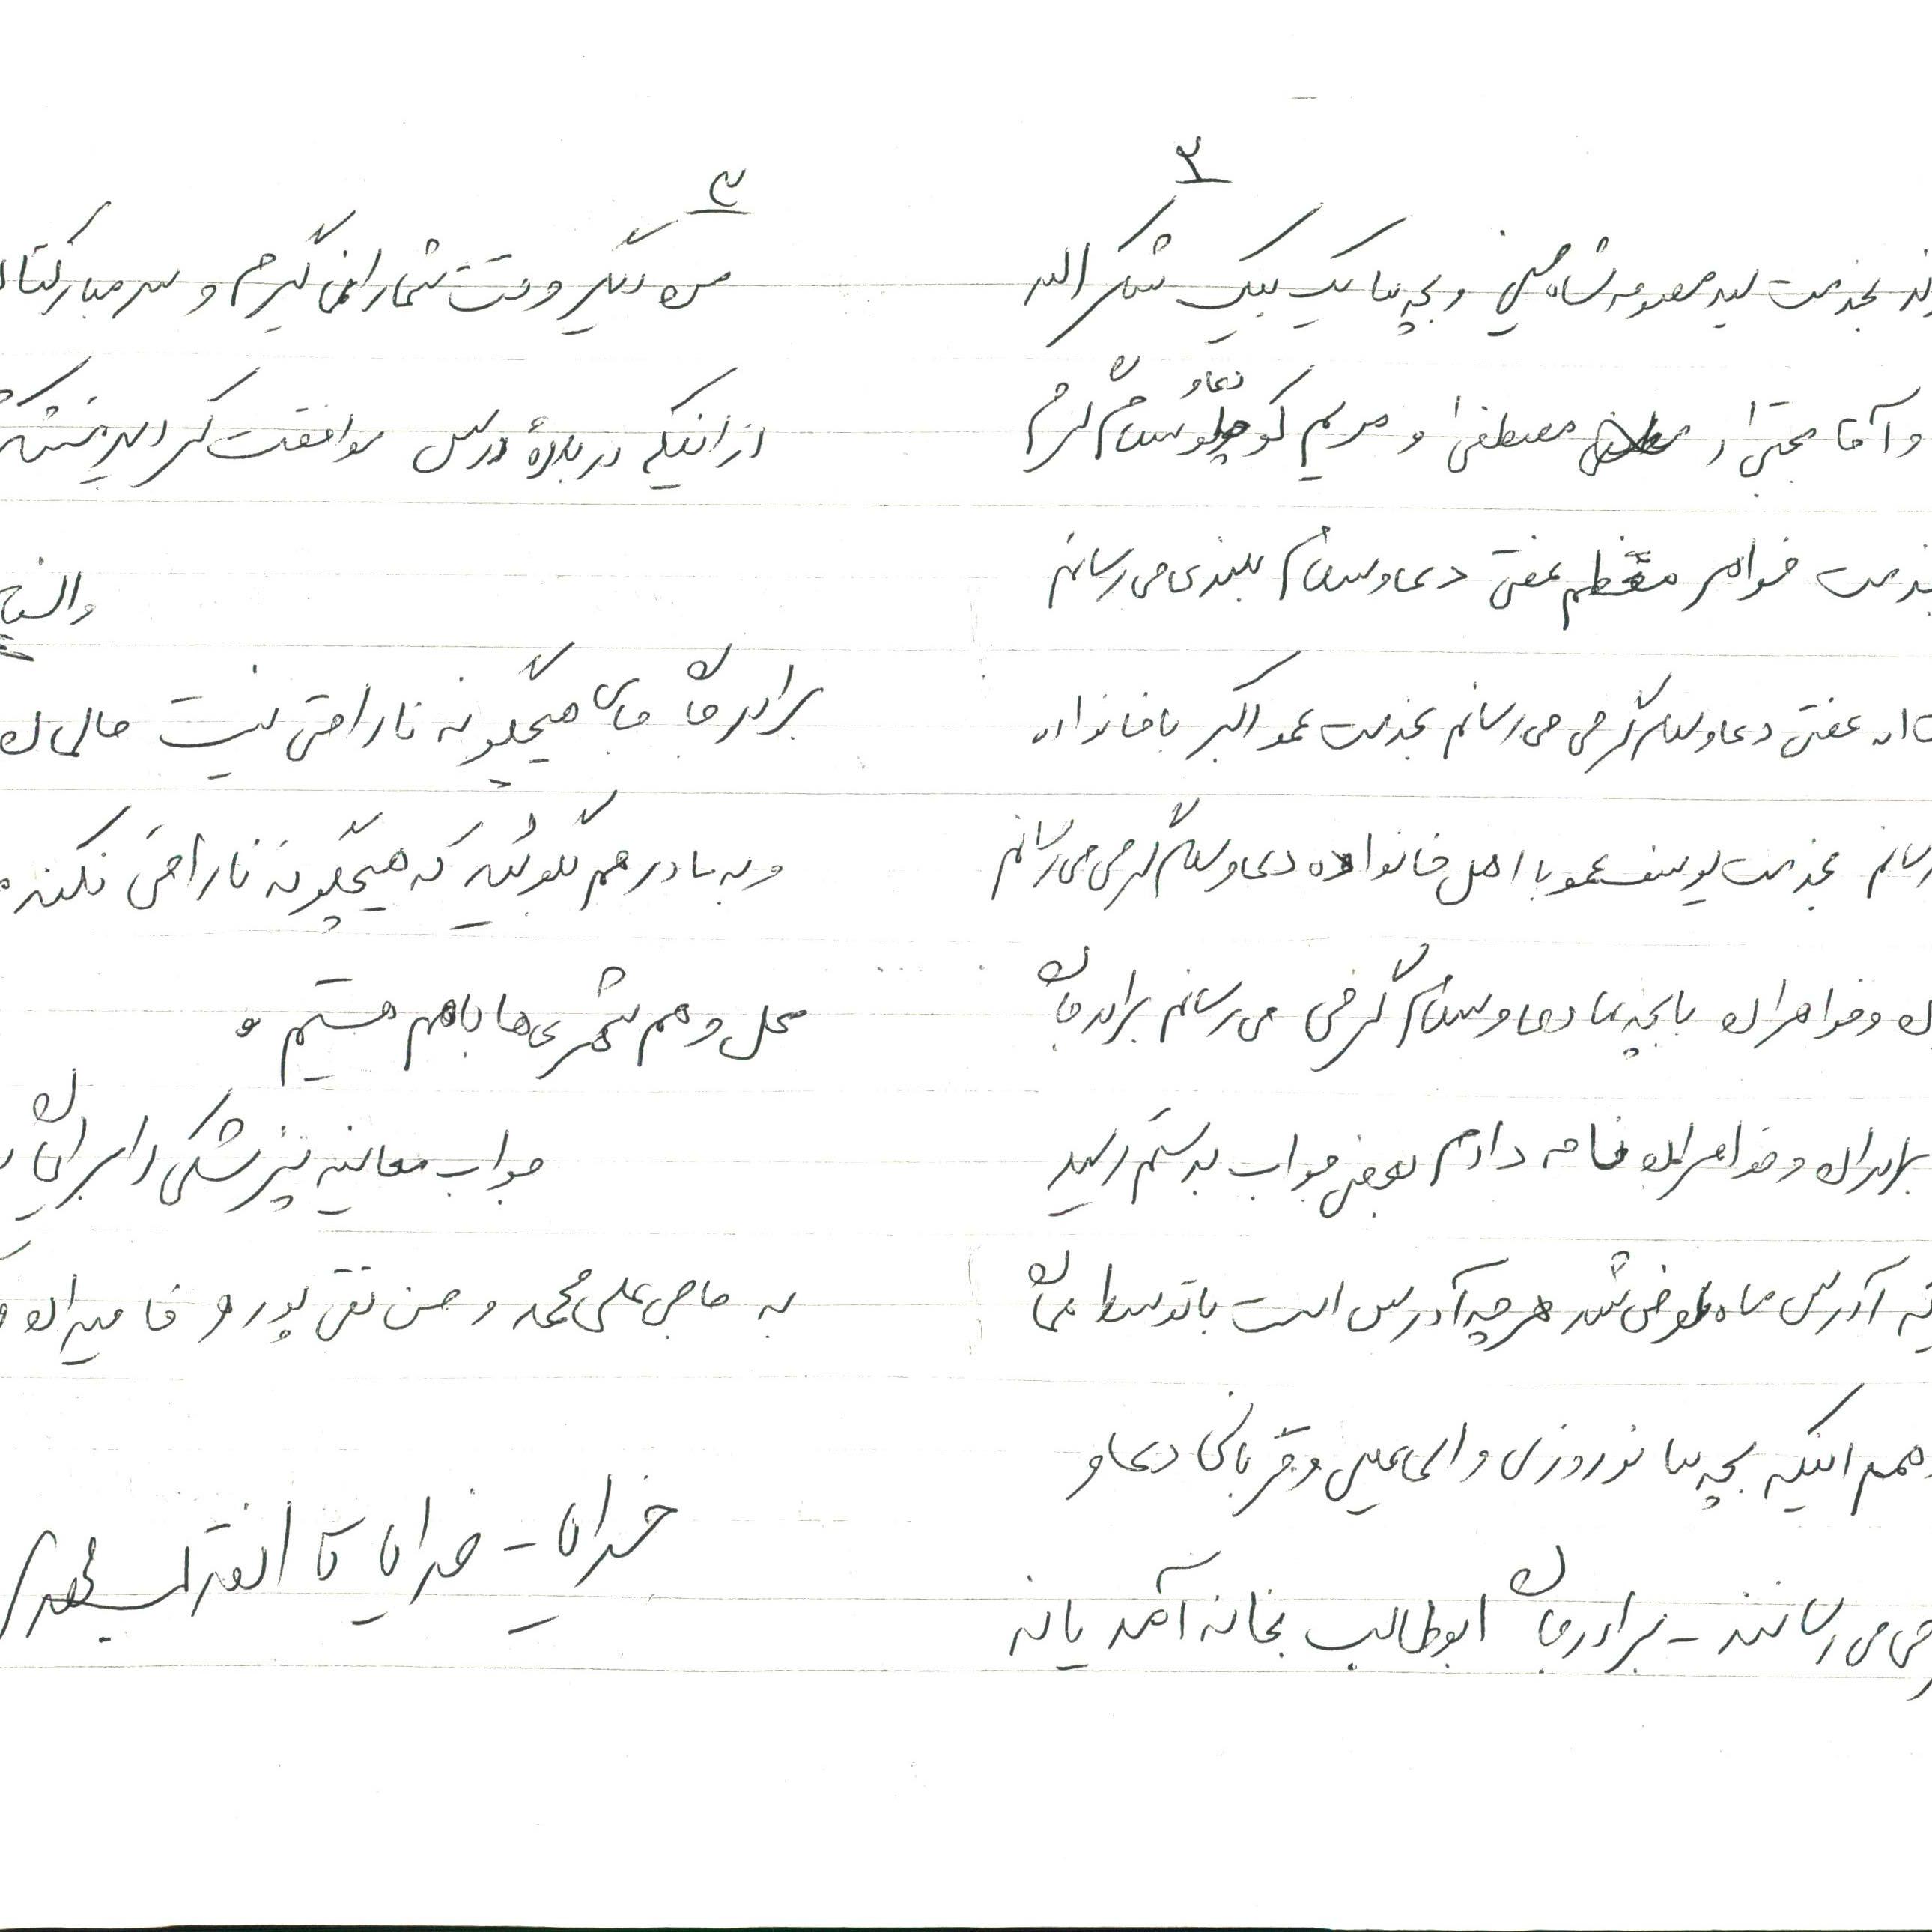 ۳
بخدمت سید معصومه شاه حسینی و بچه ها یک بیک شکرالله
و آقا مجتبی و مصطفی و مریم کوچولو دعا و سلام گرم
خدمت خواهر معظم عفتی دعا و سلام بلندی می رسانم
عفتی دعا و سلام گرمی می رسانم بخدمت عمو اکبر با خانواده
بخدمت یوسف عمو با اهل خانواده دعا و سلام گرمی می رسانم
و خواهران با بچه ها دعا و سلام گرمی می رسانم برادر جان
برادران و خواهران نامه دادم بعضی جواب بدستم رسید
آدرس ماه عوض شد هر چه آدرس است با توسط همان
اینکه بچه ها نوروزی و اسماعیلی و قربانی دعا و
می رسانند - برادر جان ابوطالب بخانه آمد یا نه
۴
من دیگر وقت شما را نمی گیرم و سر مبارکتان
از اینکه درباره درس موافقت کردید
برادر جان جای هیچگونه ناراحتی نیست حالمان
و به مادر هم بگوئید که هیچگونه ناراحتی نکند
محل و هم شهری ها با هم هستیم
جواب معاینه پزشکی را برایمان
به حاجی علی محمد و حسن تقی پور و
خدایا - خدایا تا انقلاب مهدی